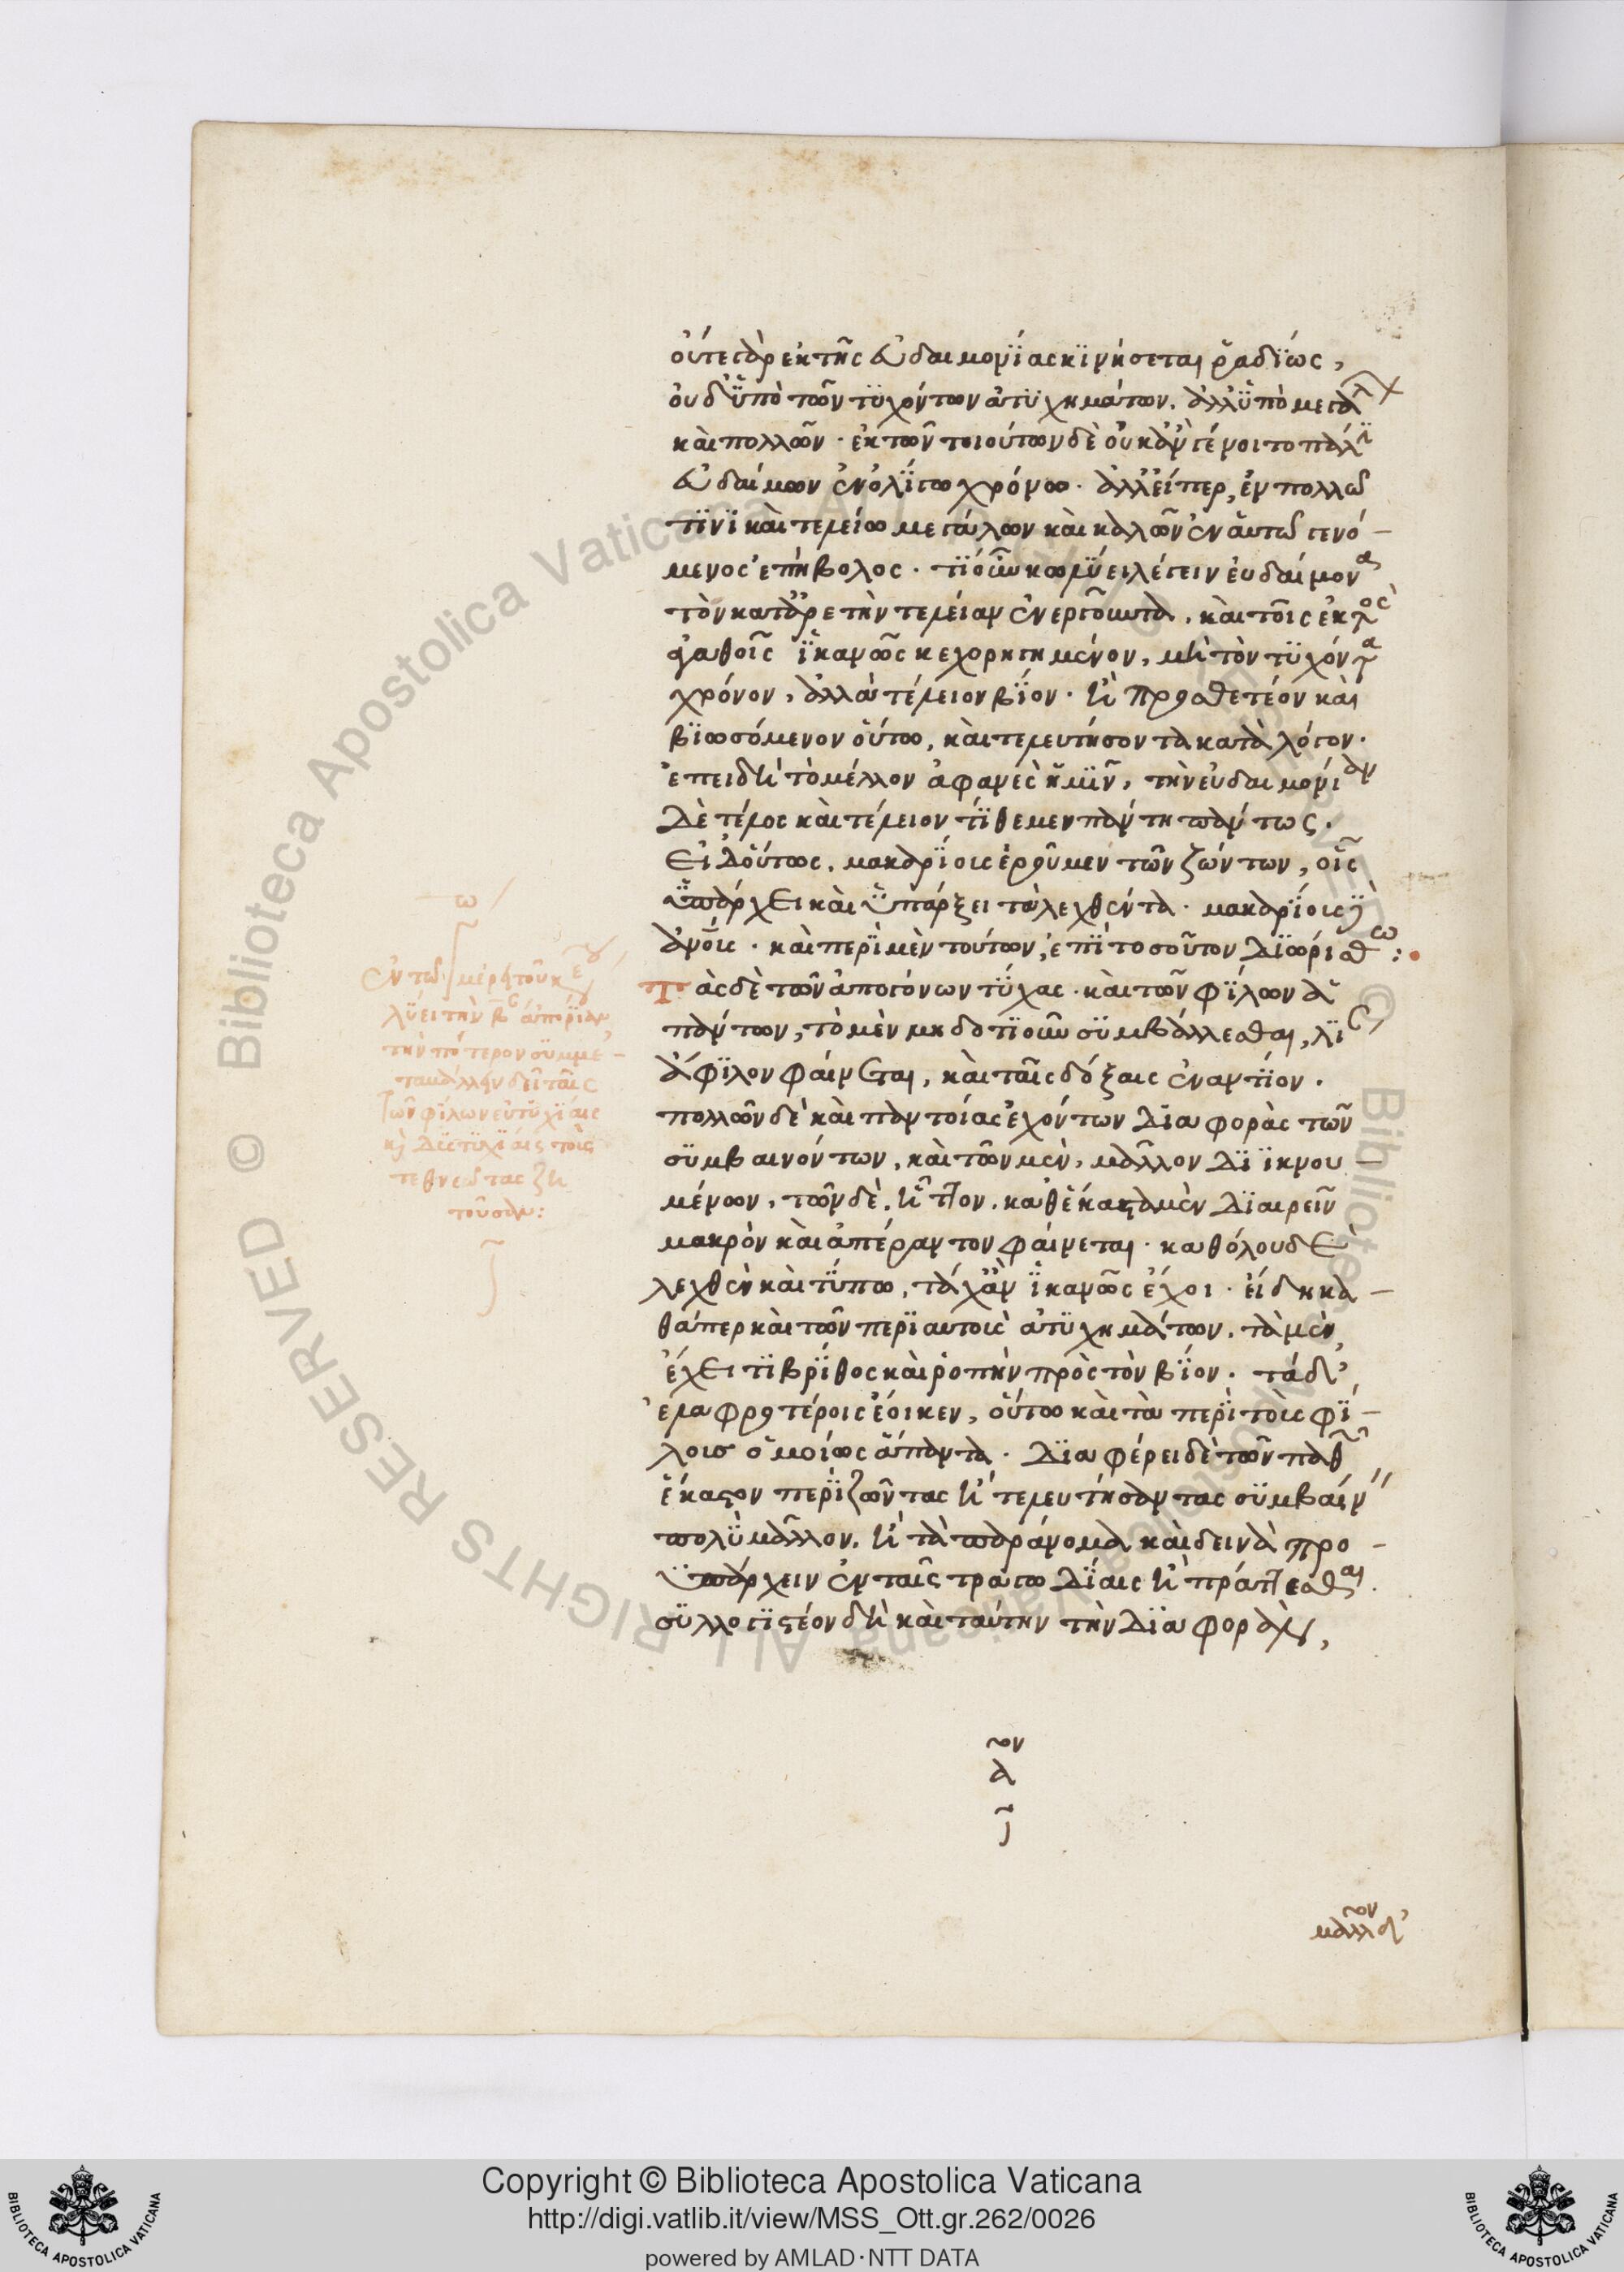 οὔτε γὰρ ἐκ τῆς εὐδαιμονίας κινήσεται ῥαδίως,
οὐδ' ὑπὸ τῶν τυχόντων ἀτυχημάτων. ἀλλ' ὑπὸ μεγάλ
καὶ πολλῶν · ἐκ τῶν τοιούτων δὲ οὐκ ἂν γένοιτο πάλι
εὐδαίμων ἐν ὀλίγω χρόνω · ἀλλ' εἴπερ, ἐν πολλῶ
τινὶ καὶ τελείω μεγάλων καὶ καλῶν ἐν αὐτῶ γενό-
μενος ἐπήβολος · τί οὖν κωλύει λέγειν εὐδαίμονα
τὸν κατ' ἀρετὴν τελείαν ἐνεργοῦντα. καὶ τοῖς ἐκτὸς
ἀγαθοῖς ἱκανῶς κεχορηγημένον, μὴ τὸν τυχόντα
χρόνον, ἀλλὰ τέλειον βίον · ἢ προσθετέον καὶ
βιωσόμενον οὕτω, καὶ τελευτήσοντα κατὰ λόγον ·
ἐπειδὴ τὸ μέλλον ἀφανὲς ἡμῖν, τὴν εὐδαιμονίαν
δὲ τέλος καὶ τέλειον τίθεμεν πάντη πάντως ·
εἰ δ' οὕτως, μακαρίους ἐροῦμεν τῶν ζώντων, οἷς
ὑπάρχει καὶ ὑπάρξει τὰ λεχθέντα · μακαρίους δ'
ἀνους · καὶ περὶ μὲν τούτων, ἐπὶ τοσοῦτον διωρίσθω :
Τὰς δὲ τῶν ἀπογόνων τύχας · καὶ τῶν φίλων ἁ
πάντων, τὸ μὲν μηδοτιοῦν συμβάλλεσθαι, λί
ἄφιλον φαίνεται, καὶ ταῖς δόξαις ἐναντίον ·
πολλῶν δὲ καὶ παντοίας ἐχόντων διαφορὰς τῶν
συμβαινόντων, καὶ τῶν μὲν, μᾶλλον διικνου-
μένων, τῶν δὲ, ἧττον. καθ' ἕκαστα μὲν διαιρεῖν
μακρὸν καὶ ἀπέραντον φαίνεται · καθόλου δὲ
λεχθὲν καὶ τύπω, τάχ' ἂν ἱκανῶς ἔχοι · εἰ δὴ κα-
θάπερ καὶ τῶν περὶ αὐτοὺς ἀτυχημάτων, τὰ μὲν
ἔχει τι βρίθος καὶ ῥοπὴν πρὸς τὸν βίον · τὰ δ'
ἐλαφροτέροις ἔοικεν, οὕτω καὶ τὰ περὶ τοὺς φί-
λους ὁμοίως ἅπαντα · διαφέρει δὲ τῶν παθ
ἕκαστον περὶ ζῶντας ἢ τελευτήσαντας συμβαίν
πολὺ μᾶλλον, ἢ τὰ παράνομα καὶ δεινὰ προ-
ϋπάρχειν ἐν ταῖς τραγωδίαις ἢ πράττεσθαι.
συλλογιστέον δὴ καὶ ταύτην τὴν διαφορὰν,
ἐν τῶ
λύει τὴν β ἀπορίαν
τὴν πότερον συμμε-
ταβάλλειν δεῖ ταῖς
τῶν φίλων εὐτυχίαις
κ δυστυχίαις τοὺς
τεθνεῶτας ζη
τοῦσαν :
μᾶλλον δ'
Copyright © Biblioteca Apostolica Vaticana
http://digi.vatlib.it/view/MSS_Ott.gr.262/0026
powered by AMLAD·NTT DATA
BIBLIOTECA APOSTOLICA VATICANA
BIBLIOTECA APOSTOLICA VATICANA